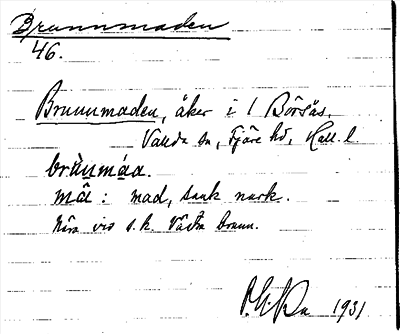 Brunnmaden
46.
Brunnmaden, åker i 1 Börsås,
Vallda sn, Fjäre hd, Hall. l.
brùnmáa.
mâ: mad, sank mark.
Nära vid s.k. Västra brunn.
1931